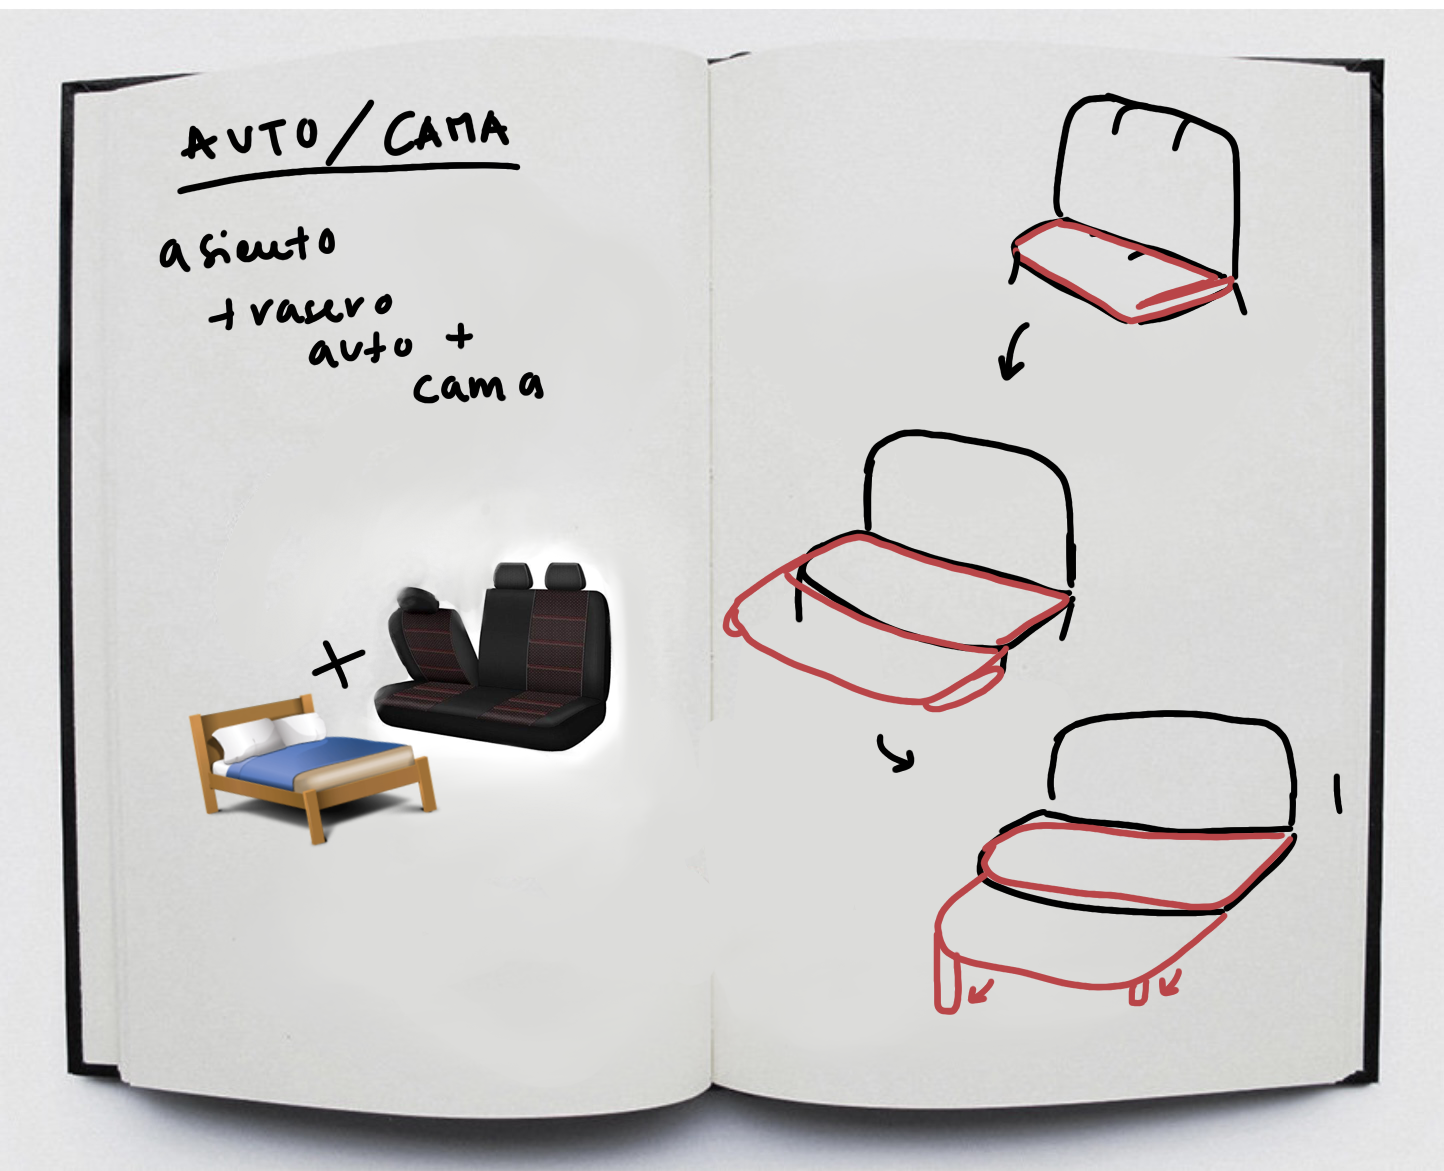 AUTO/CAMA
asiento
trasero
auto +
cama
+